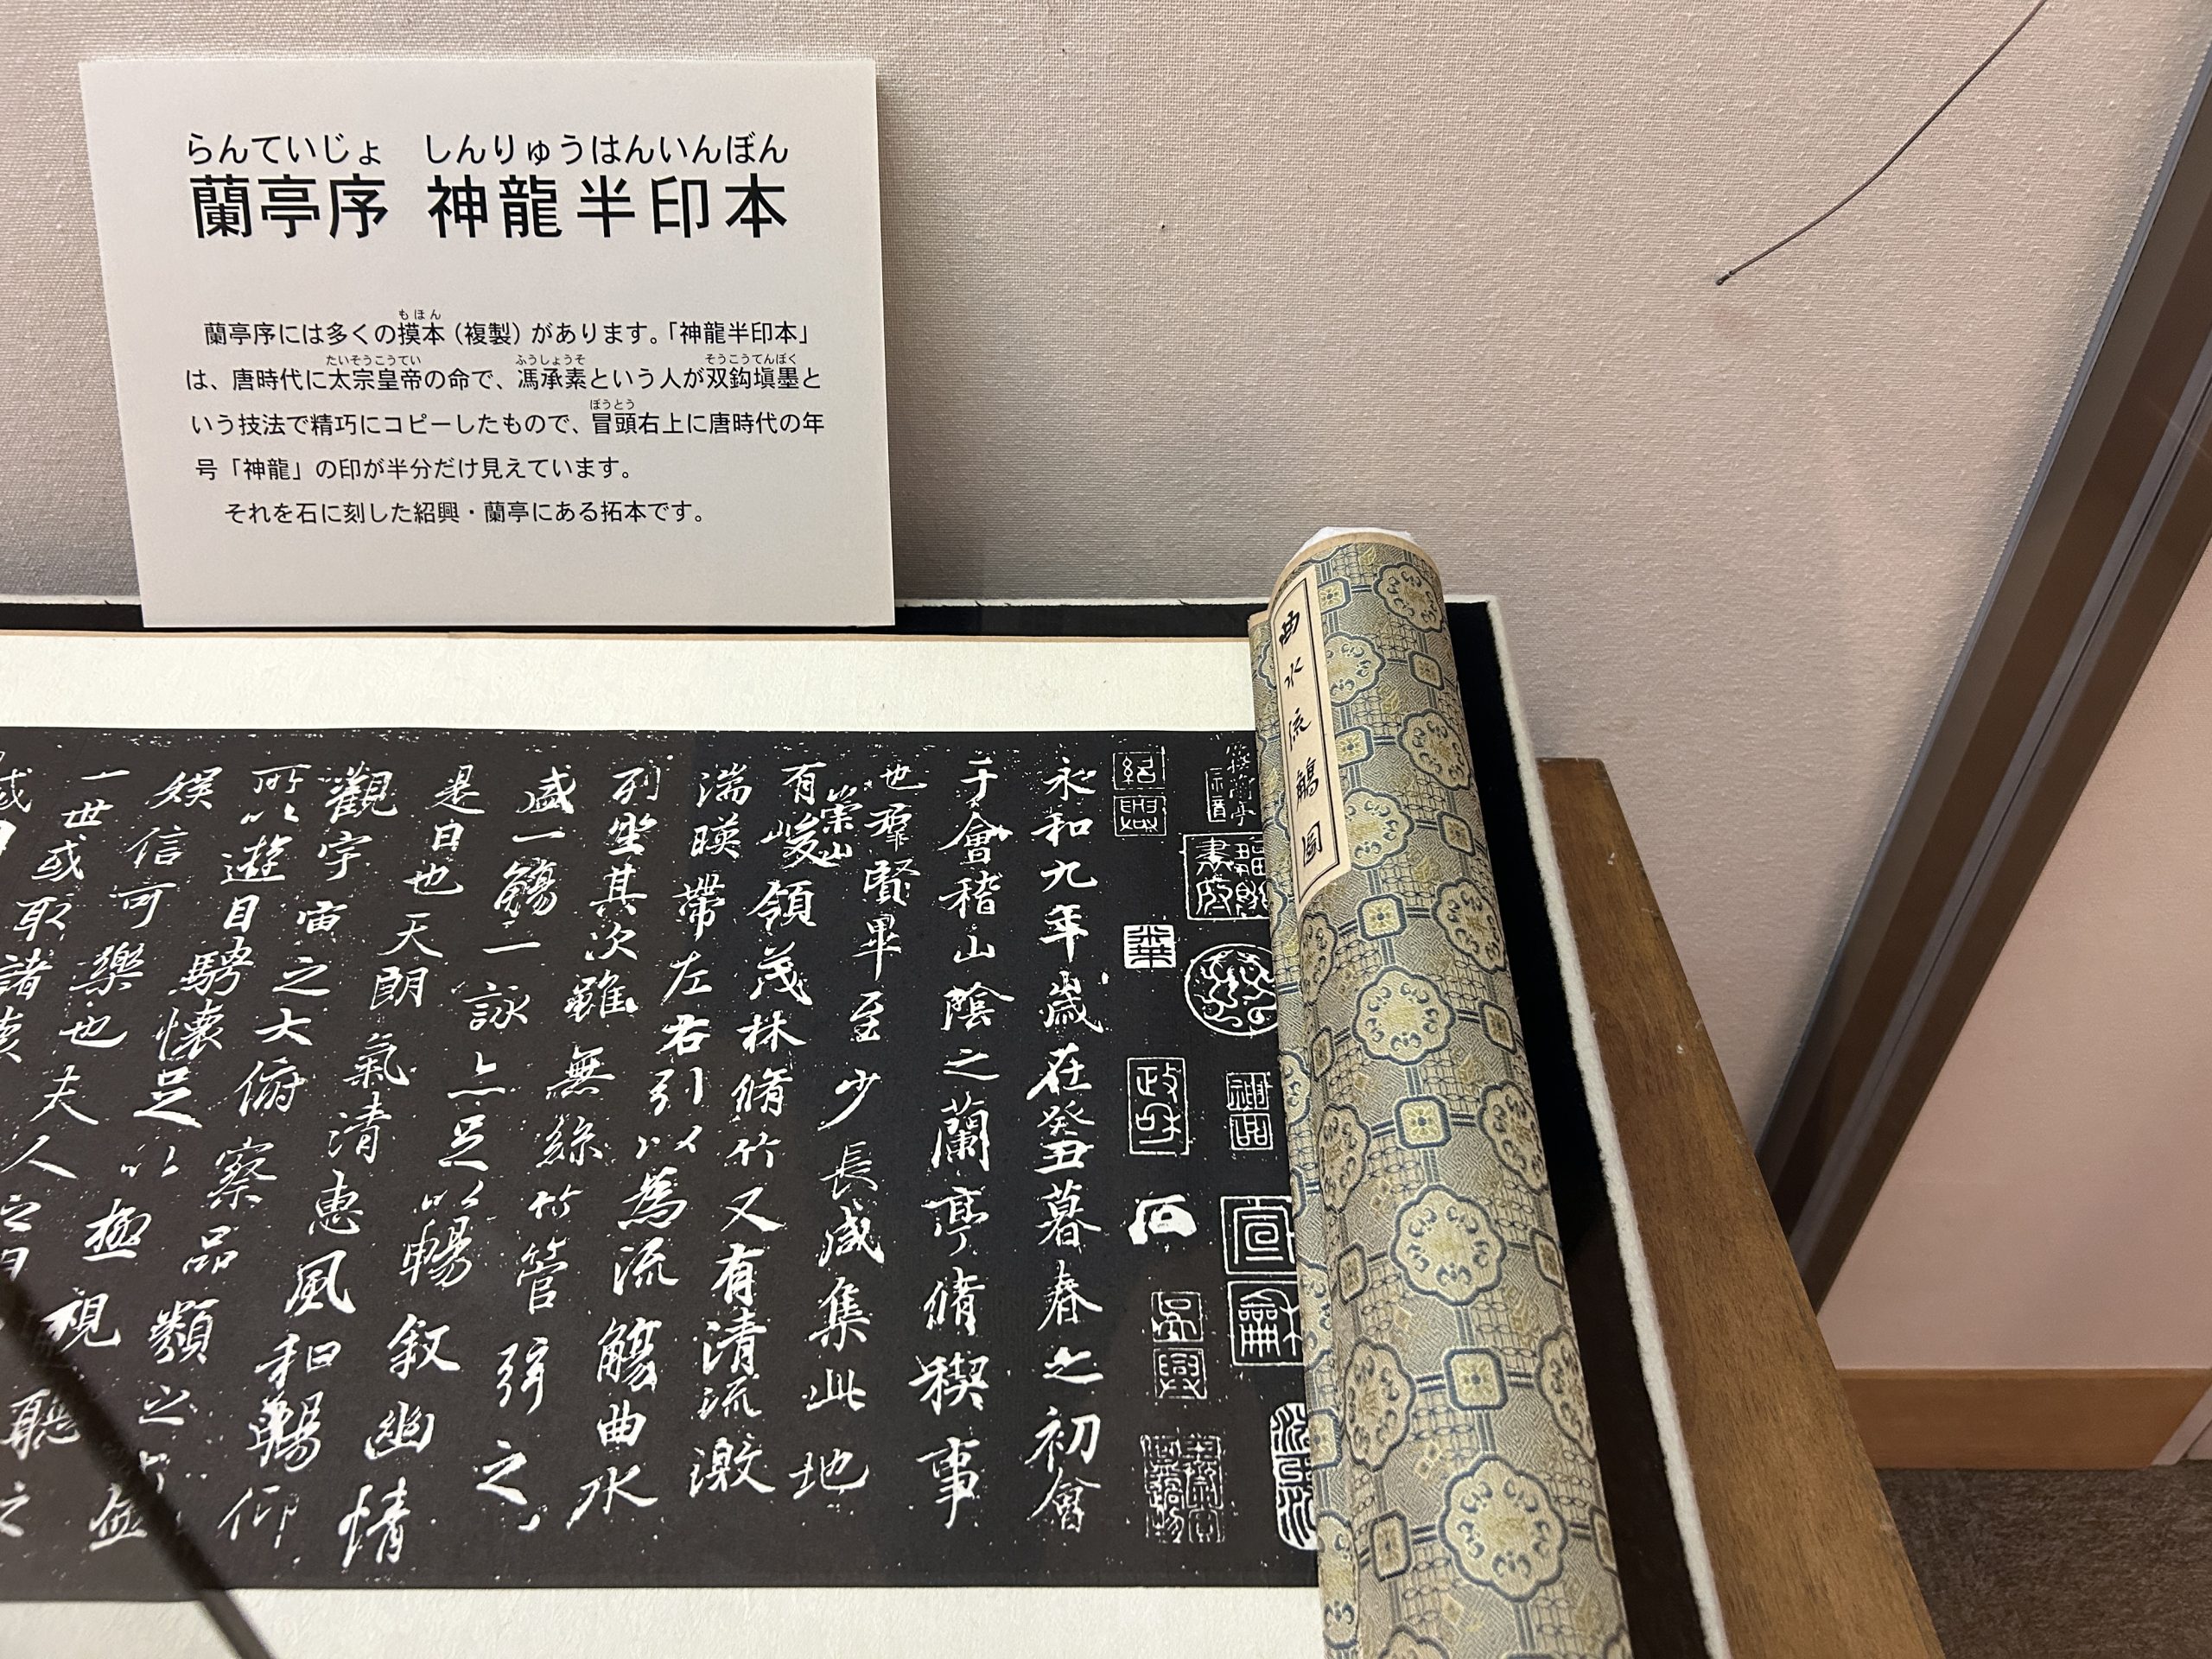 らんていじょ　しんりゅうはんいんぼん
蘭亭序 神龍半印本
もほん
蘭亭序には多くの摸本（複製）があります。「神龍半印本」
たいそうこうてい　ふうしょうそ　そうこうてんぼく
は、唐時代に太宗皇帝の命で、馮承素という人が双鈎塡墨と
ぼうとう
いう技法で精巧にコピーしたもので、冒頭右上に唐時代の年
号「神龍」の印が半分だけ見えています。
それを石に刻した紹興・蘭亭にある拓本です。
曲水流觴圖
紹興
政和
吳興
永和九年歲在癸丑暮春之初會
于會稽山陰之蘭亭脩稧事
也羣賢畢至少長咸集此地
有崇山峻領茂林脩竹又有清流激
湍暎帶左右引以為流觴曲水
列坐其次雖無絲竹管弦之
盛一觴一詠亦足以暢敘幽情
是日也天朗氣清惠風和暢仰
觀宇宙之大俯察品類之盛
所以遊目騁懷足以極視聽之
娛信可樂也夫人之相
一世或取諸懷